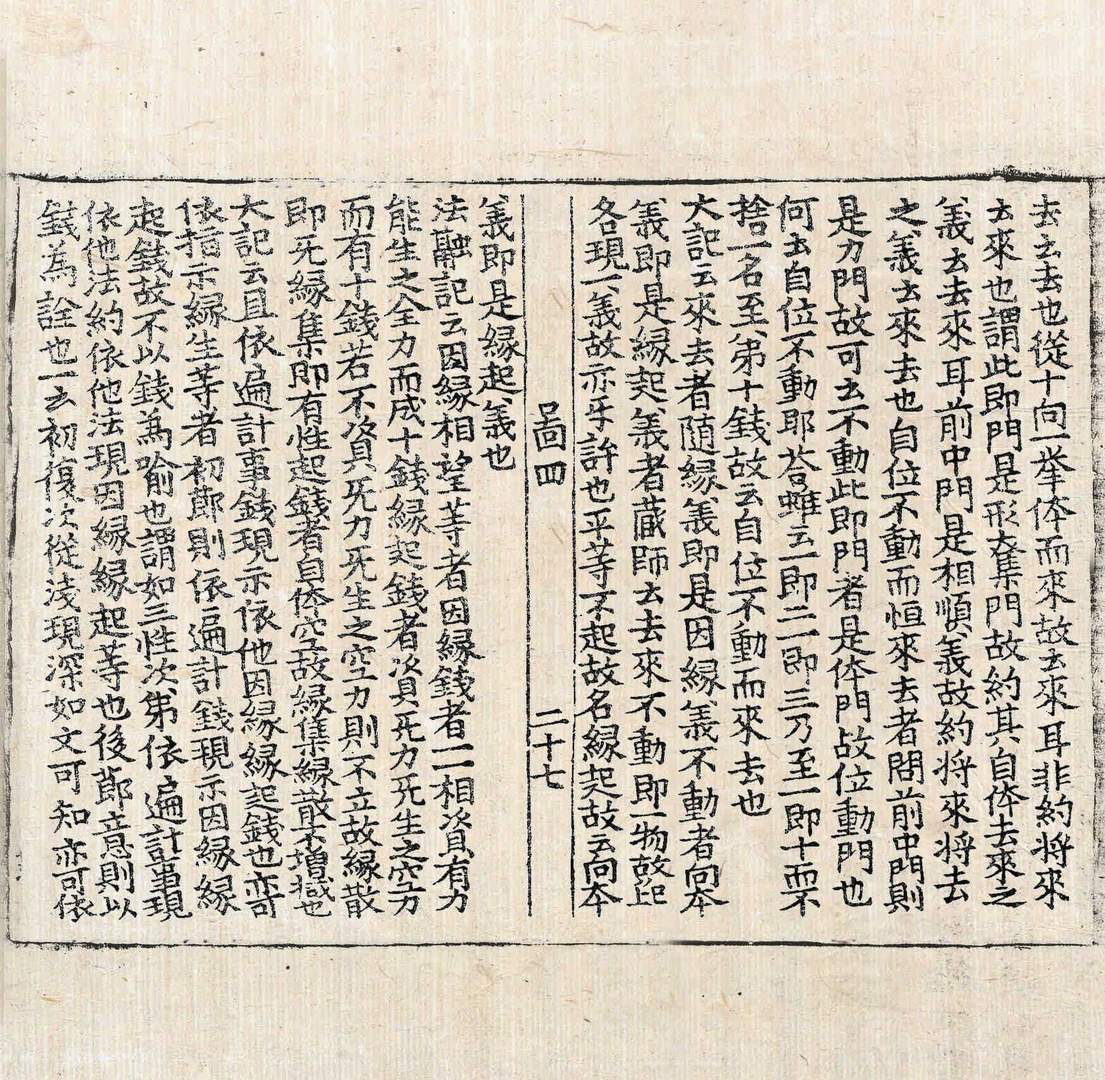 去去去也從十向一举体而來故云來耳非約將來
去來也謂此即門是形奪門故約其自体去來之
義云去來耳前中門是相順義故約將來將去
之義云來去也自位不動而恒來去者問前中門則
是力門故可云不動此即門者是体門故位動門也
何云自位不動耶荅雖云一即二一即三乃至一即十而不
捨一名至第十錢故云自位不動而來去也
大記云來去者隨緣義即是因緣義不動者向本
義即是緣起義者藏師云去來不動即一物故起
各現一義故亦乎許也平等不起故名緣起故云向本
啚四 二十七
義即是緣起義也
法融記云因緣相望等者因緣錢者一一相資有力
能生之全力而成十錢緣起錢者資无力无生之空力
而有十錢若不資无力无生之空力則不立故緣散
即无緣集即有性起錢者自体空故緣集緣散不增減也
大記云且依遍計事錢現示依他因緣緣起錢也亦可
依指示緣生等者初節則依遍計錢現示因緣緣
起錢故不以錢為喻也謂如三性次第依遍計事現
依他法約依他法現因緣緣起等也後節意則以
錢為詮也一云初復次從淺現深如文可知亦可依